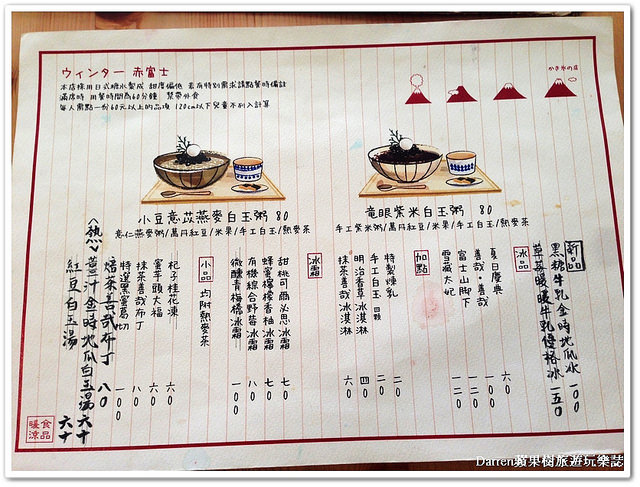 ウィンター 赤富士
本店採用日式糖水製成 甜度偏低 若有特別需求請點餐時備註
滿席時 用餐時間為60分鐘 禁帶外食
每人需點一份60元以上的品項 120cm以下兒童不列入計算
かき氷の店
小豆薏苡燕麥白玉粥 80
薏仁燕麥粥/萬丹紅豆/米果/手工白玉/熱麥茶
竜眼紫米白玉粥 80
手工紫米粥/萬丹紅豆/米果/手工白玉/熱麥茶
新品
黑糖牛乳金時地瓜冰 一00
草莓暖暖牛乳優格冰 一五0
冰品
夏日慶典 六0
善哉·善哉 一00
富士山脚下 一二0
雪藏大妃 一二0
加點
特製煉乳 二0
手工白玉 四顆 二0
明治香草冰淇淋 四0
抹茶善哉冰淇淋 六0
冰霜
甜桃可爾必思冰霜 七0
蜂蜜檸檬香柚冰霜 七0
有機綜合野莓冰霜 八0
微醺青梅橋冰霜 一00
小品 均附熱麥茶
杞子桂花凍 六0
蜜芋頭大福 六0
抹茶善哉布丁 八0
特選黑蜜葛切 一00
焙茶善哉布丁 八0
〈熱〉薑汁金時地瓜白玉湯 六十
紅豆白玉湯 六十
暖涼食品
Darren蘋果樹旅遊玩樂誌